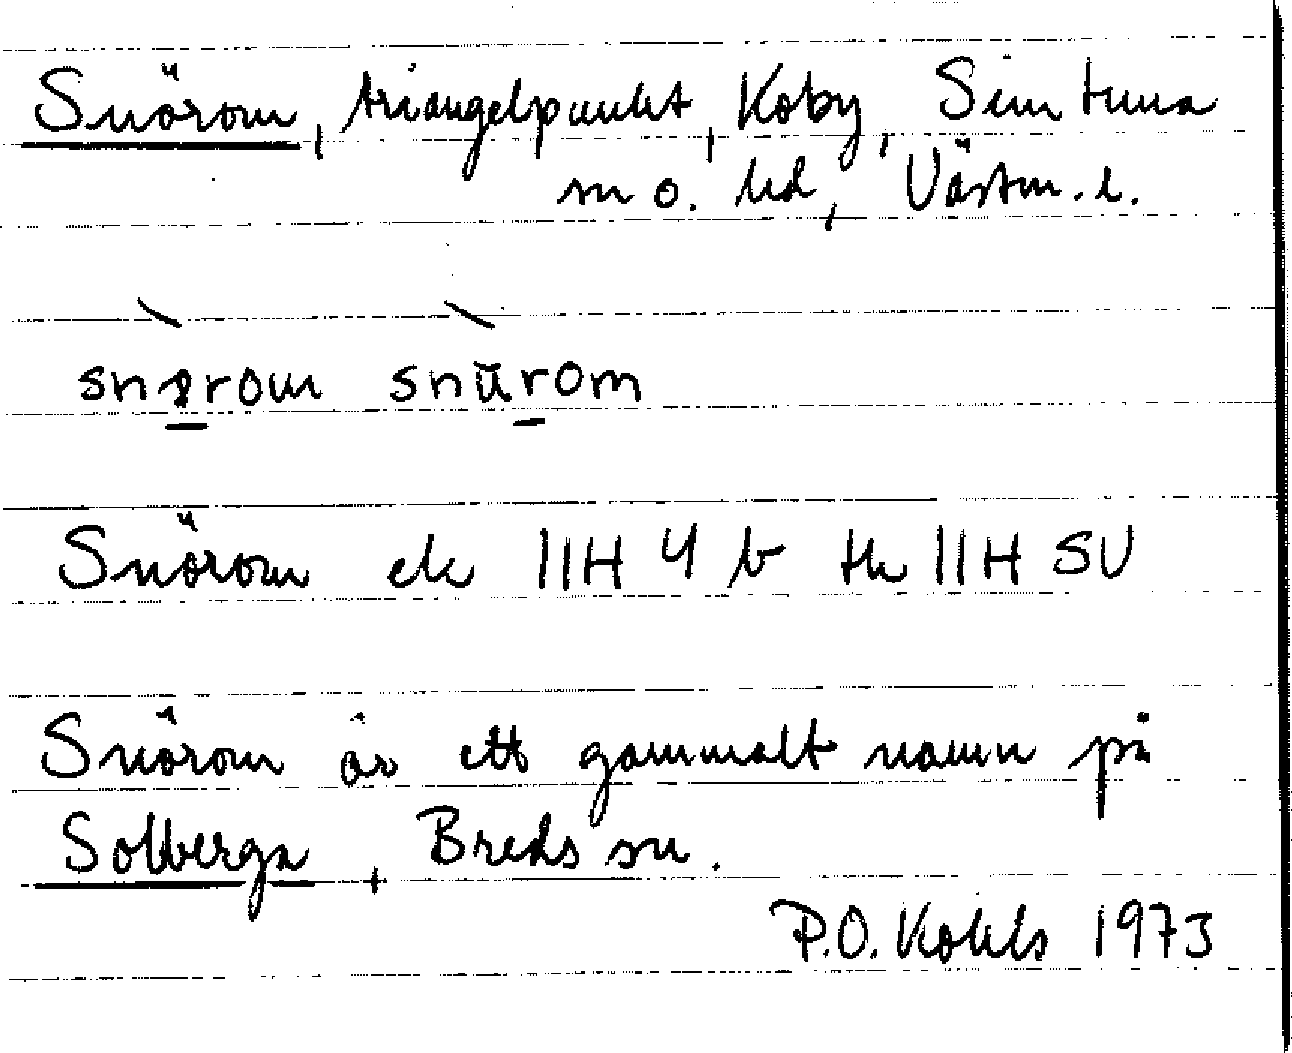 Snörom, triangelpunkt, Koby, Simtuna
sn o. hd, Västm. l.
snørom snūrom
Snörom ek 11H 4 b tk 11H SV
Snörom är ett gammalt namn på
Solberga, Breds sn.
P.O. Kohls 1973